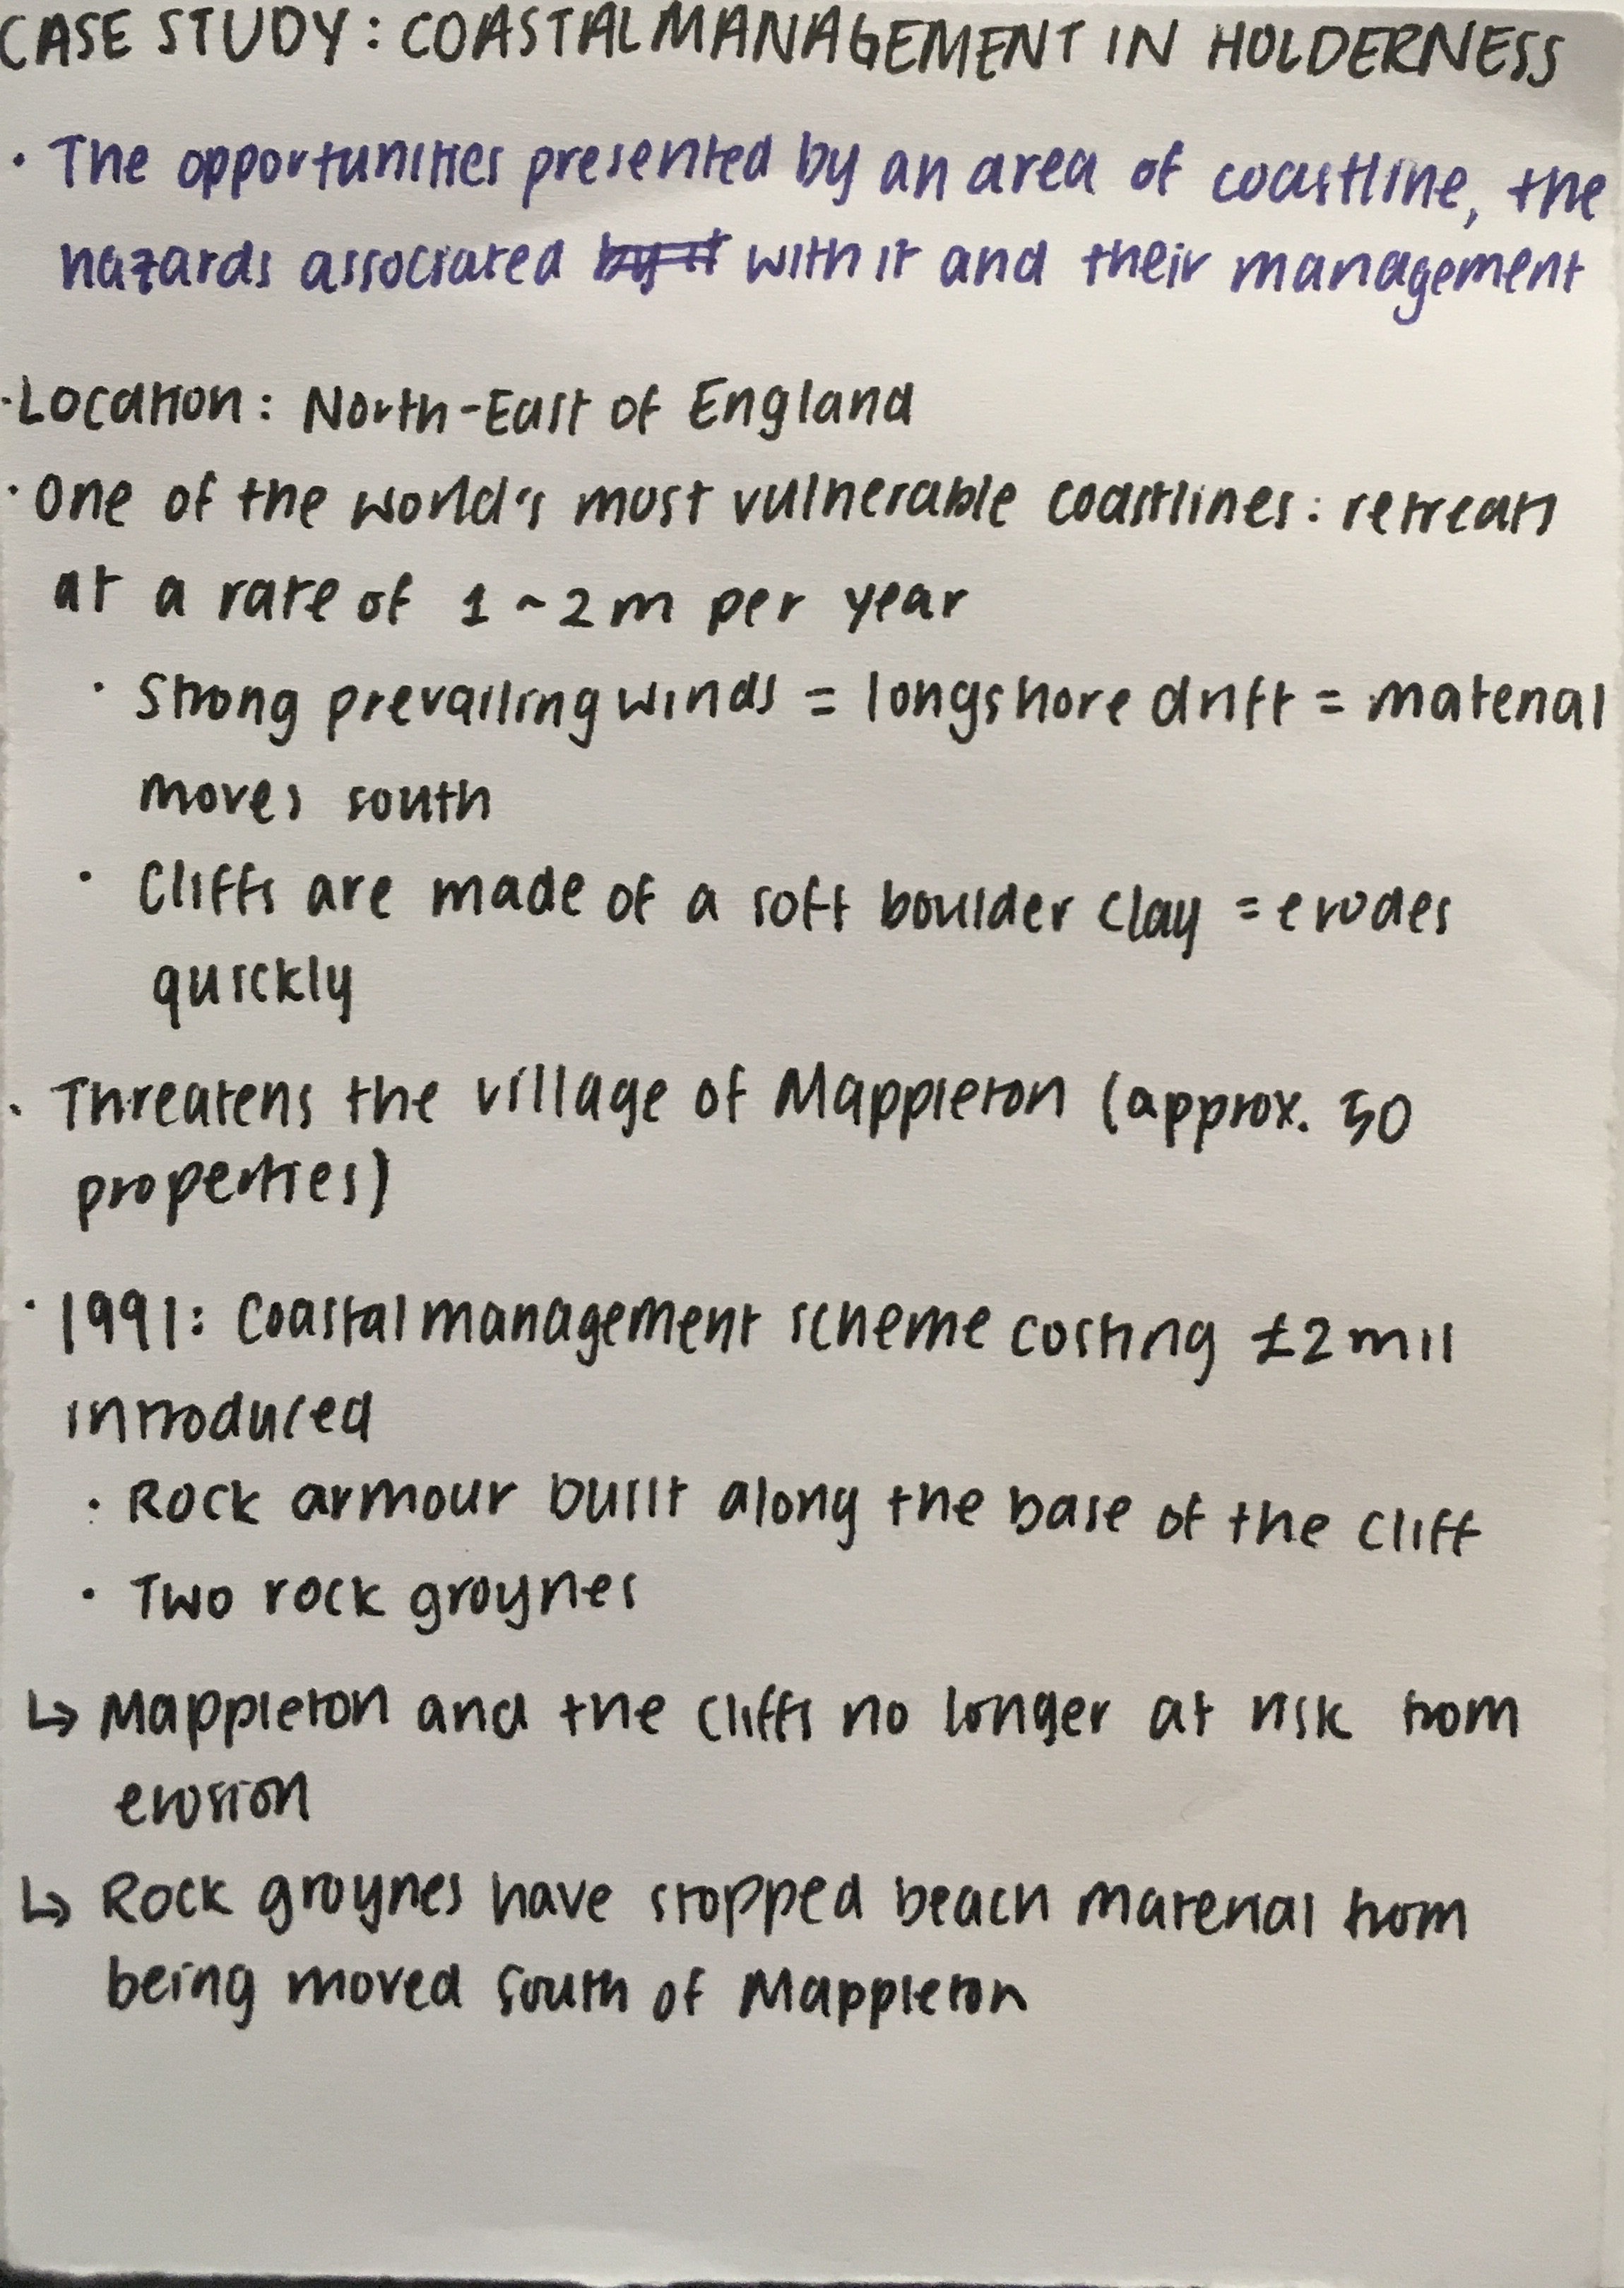 CASE STUDY: COASTAL MANAGEMENT IN HOLDERNESS
• The opportunities presented by an area of coastline, the
hazards associated by it with it and their management
• Location: North-East of England
• One of the world's most vulnerable coastlines: retreats
at a rate of 1~2m per year
• Strong prevailing winds = longshore drift = material
moves south
• Cliffs are made of a soft boulder clay = erodes
quickly
• Threatens the village of Mappleton (approx. 50
properties)
• 1991: Coastal management scheme costing £2mil
introduced
• Rock armour built along the base of the cliff
• Two rock groynes
↳ Mappleton and the cliffs no longer at risk from
erosion
↳ Rock groynes have stopped beach material from
being moved south of Mappleton